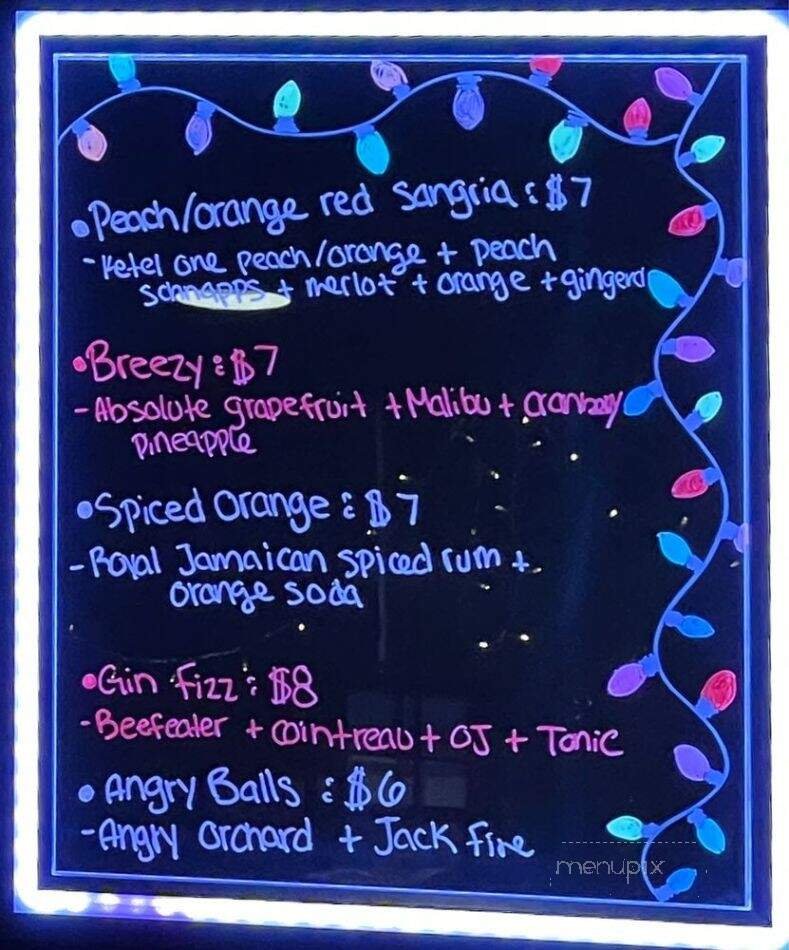 •Peach/orange red sangria : $7
-Ketel one peach/orange + peach
schnapps + merlot + orange + gingeral
•Breezy : $7
-Absolute grapefruit + Malibu + cranberry
pineapple
•Spiced Orange : $7
-Royal Jamaican spiced rum +
orange soda
•Gin Fizz : $8
-Beefeater + cointreau + OJ + Tonic
•Angry Balls : $6
-Angry Orchard + Jack Fire
menupix